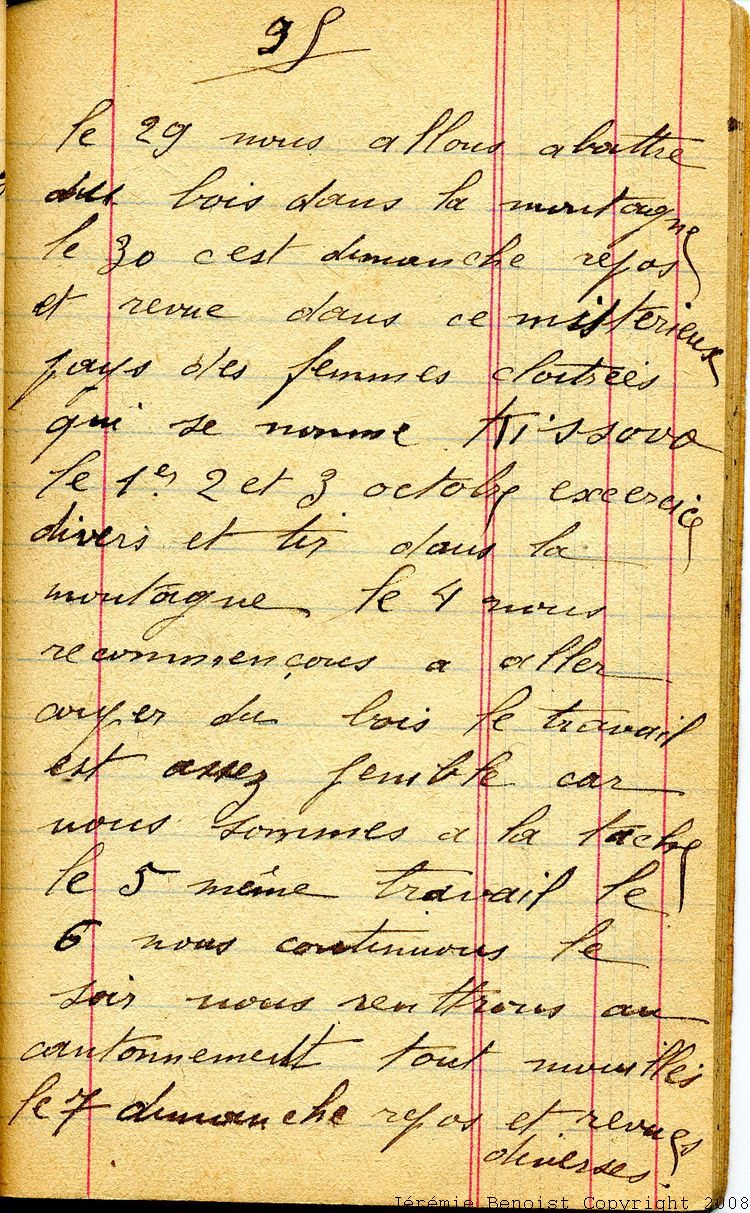 95
le 29 nous allons abattre
du bois dans la montagne
le 30 c'est dimanche repos
et revue dans ce misterieux
pays des femmes cloitrées
qui se nomme Kissovo
le 1er 2 et 3 octobre excercice
divers et tir dans la
montagne le 4 nous
recommençons a aller
couper du bois le travail
est assez penible car
nous sommes a la tache
le 5 même travail le
6 nous continuons le
soir nous renttrons au
cantonnement tout mouillés
le 7 dimanche repos et revues
diverses.
Jérémie Benoist Copyright 2008